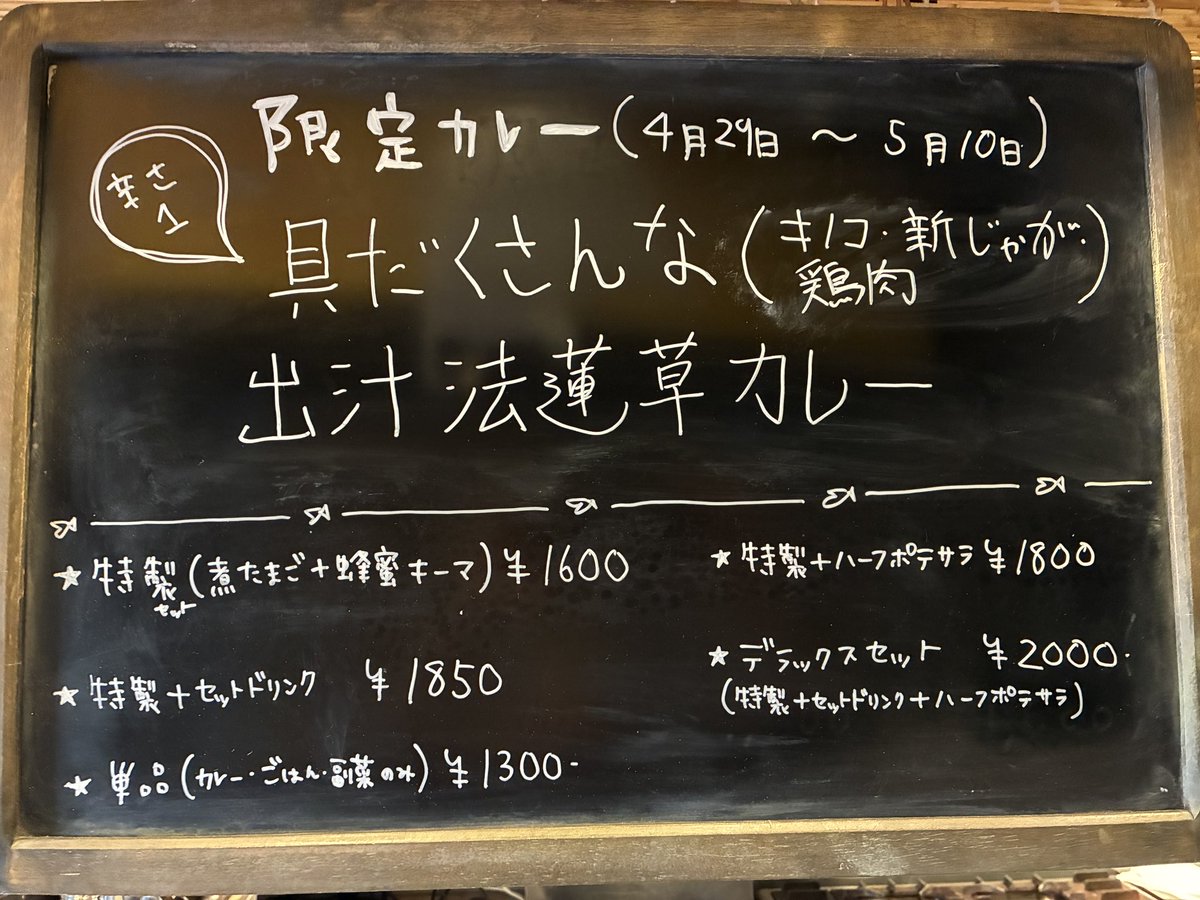 限定カレー(4月29日 〜 5月10日)
辛さ
1
具だくさんな(キノコ・新じゃが・
鶏肉)
出汁法蓮草カレー
★特製(煮たまご+蜂蜜キーマ)¥1600
セット
★特製+ハーフポテサラ ¥1800
★特製+セットドリンク ¥1850
★デラックスセット ¥2000.
(特製+セットドリンク+ハーフポテサラ)
★単品(カレー・ごはん・副菜のみ)¥1300-